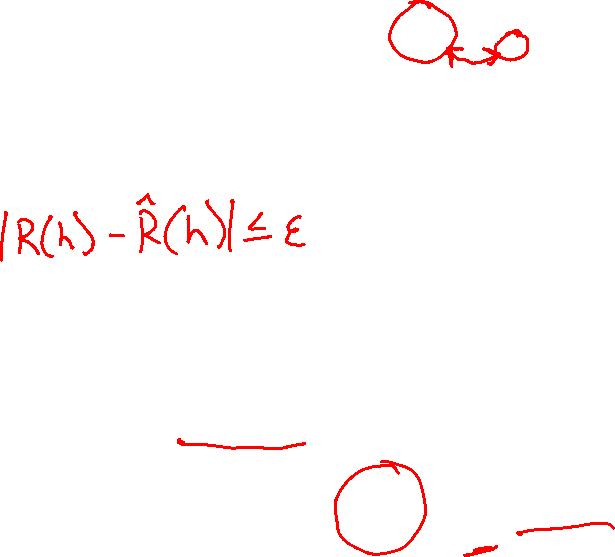 |R(h) - R̂(h)| ≤ ε